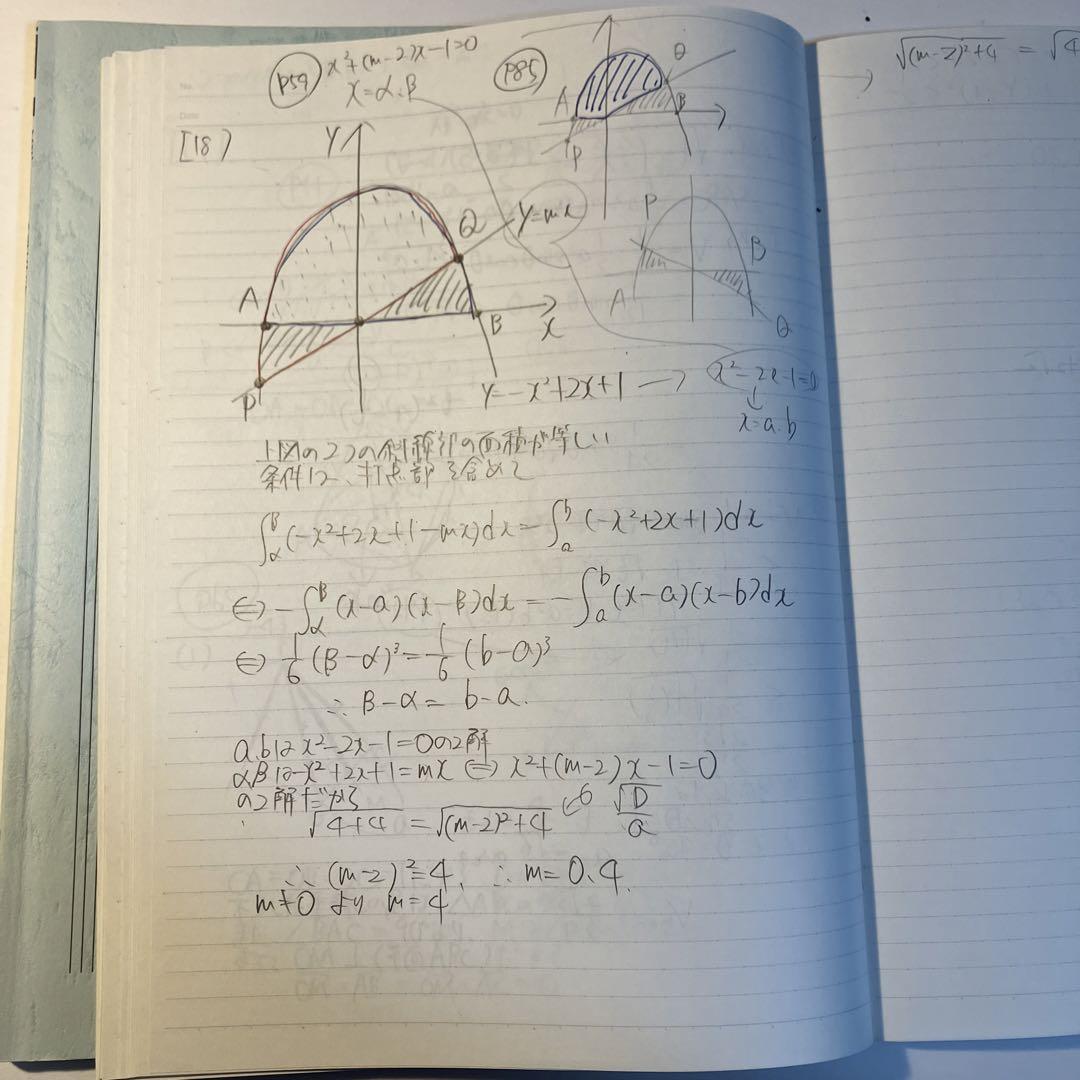 P59
x²+(m-2)x-1=0
x=α.β
P85
√(m-2)²+4 = √4
[18)
Y
A
Q
B
P
Y=mx
P
B
A
Q
A
Q
B
P
X
Y=-x²+2x+1 → x²-2x-1=0
↓
x=a.b
上図の2つの斜線部の面積が等しい
条件は、打点部を含めて
∫_α^β (-x²+2x+1-mx)dx = ∫_a^b (-x²+2x+1)dx
⇔ -∫_α^β (x-α)(x-β)dx = -∫_a^b (x-a)(x-b)dx
⇔ 1/6 (β-α)³ = 1/6 (b-a)³
∴ β-α = b-a.
a,bは x²-2x-1=0の2解
α,βは-x²+2x+1=mx ⇔ x²+(m-2)x-1=0
の2解だから
√4+4 = √(m-2)²+4
√D/a
∴ (m-2)²=4, ∴ m=0,4.
m≠0 より m=4